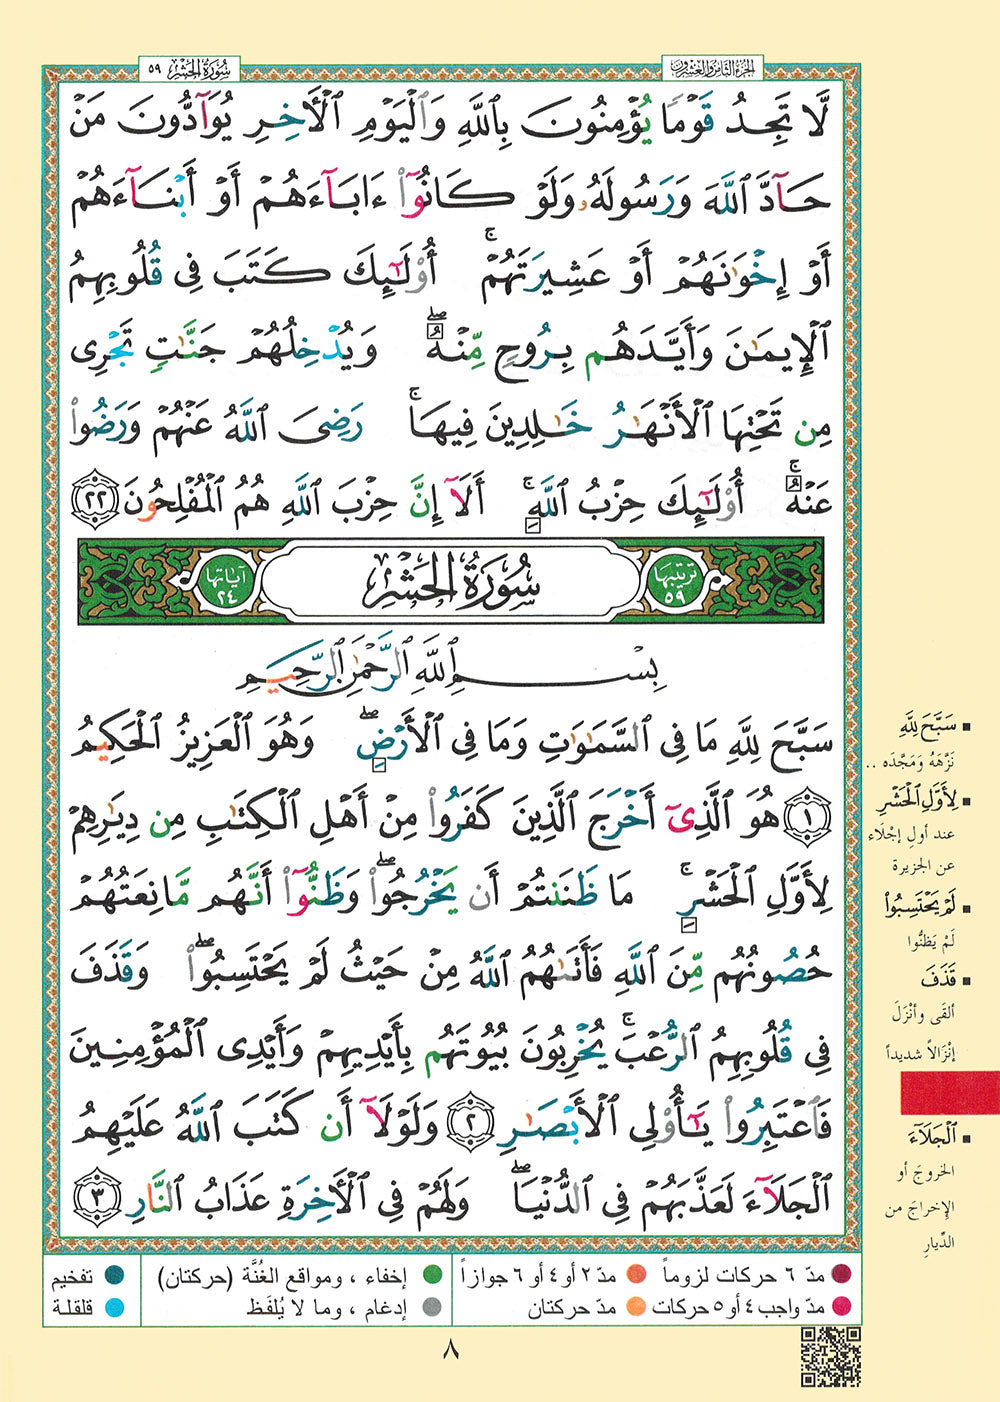 سُورَةُ الحَشْرِ ٥٩
الجُزْءُ الثَّامِنُ وَالعِشْرُونَ
لَّا تَجِدُ قَوْمًا يُؤْمِنُونَ بِٱللَّهِ وَٱلْيَوْمِ ٱلْأَخِرِ يُوَآدُّونَ مَنْ
حَآدَّ ٱللَّهَ وَرَسُولَهُۥ وَلَوْ كَانُوٓا۟ ءَابَآءَهُمْ أَوْ أَبْنَآءَهُمْ
أَوْ إِخْوَٰنَهُمْ أَوْ عَشِيرَتَهُمْ ۚ أُو۟لَٰٓئِكَ كَتَبَ فِى قُلُوبِهِمُ
ٱلْإِيمَٰنَ وَأَيَّدَهُم بِرُوحٍ مِّنْهُ ۖ وَيُدْخِلُهُمْ جَنَّٰتٍ تَجْرِى
مِن تَحْتِهَا ٱلْأَنْهَٰرُ خَٰلِدِينَ فِيهَا ۚ رَضِىَ ٱللَّهُ عَنْهُمْ وَرَضُوا۟
عَنْهُ ۚ أُو۟لَٰٓئِكَ حِزْبُ ٱللَّهِ ۚ أَلَآ إِنَّ حِزْبَ ٱللَّهِ هُمُ ٱلْمُفْلِحُونَ ٢٢
تَرتيبها ٥٩
سُورَةُ الحَشْرِ
آيَاتها ٢٤
بِسْمِ ٱللَّهِ ٱلرَّحْمَٰنِ ٱلرَّحِيمِ
سَبَّحَ لِلَّهِ مَا فِى ٱلسَّمَٰوَٰتِ وَمَا فِى ٱلْأَرْضِ ۖ وَهُوَ ٱلْعَزِيزُ ٱلْحَكِيمُ
١ هُوَ ٱلَّذِىٓ أَخْرَجَ ٱلَّذِينَ كَفَرُوا۟ مِنْ أَهْلِ ٱلْكِتَٰبِ مِن دِيَٰرِهِمْ
لِأَوَّلِ ٱلْحَشْرِ ۚ مَا ظَنَنتُمْ أَن يَخْرُجُوا۟ ۖ وَظَنُّوٓا۟ أَنَّهُم مَّانِعَتُهُمْ
حُصُونُهُم مِّنَ ٱللَّهِ فَأَتَىٰهُمُ ٱللَّهُ مِنْ حَيْثُ لَمْ يَحْتَسِبُوا۟ ۖ وَقَذَفَ
فِى قُلُوبِهِمُ ٱلرُّعْبَ ۚ يُخْرِبُونَ بُيُوتَهُم بِأَيْدِيهِمْ وَأَيْدِى ٱلْمُؤْمِنِينَ
فَٱعْتَبِرُوا۟ يَٰٓأُو۟لِى ٱلْأَبْصَٰرِ ٢ وَلَوْلَآ أَن كَتَبَ ٱللَّهُ عَلَيْهِمُ
ٱلْجَلَآءَ لَعَذَّبَهُمْ فِى ٱلدُّنْيَا ۖ وَلَهُمْ فِى ٱلْأَخِرَةِ عَذَابُ ٱلنَّارِ ٣
■ سَبَّحَ لِلَّهِ
نَزَّهَهُ وَمَجَّدَه ..
■ لِأَوَّلِ الْحَشْرِ
عند أولِ إجْلَاء
عن الجزيرة
■ لَمْ يَحْتَسِبُوا۟
لَمْ يَظُنُّوا
■ قَذَفَ
ألقَى وأَنْزَلَ
إنْزَالاً شديداً
■ ٱلْجَلَآءَ
الخروجَ أو
الإخراجَ من
الدِّيارِ
مدّ ٦ حركات لزوماً
مدّ ٢ أو ٤ أو ٦ جوازاً
إخفاء ، ومواقع الغُنَّة (حركتان)
تفخيم
مدّ واجب ٤ أو ٥ حركات
مدّ حركتان
إدغام ، وما لا يُلفَظ
قلقلة
٨